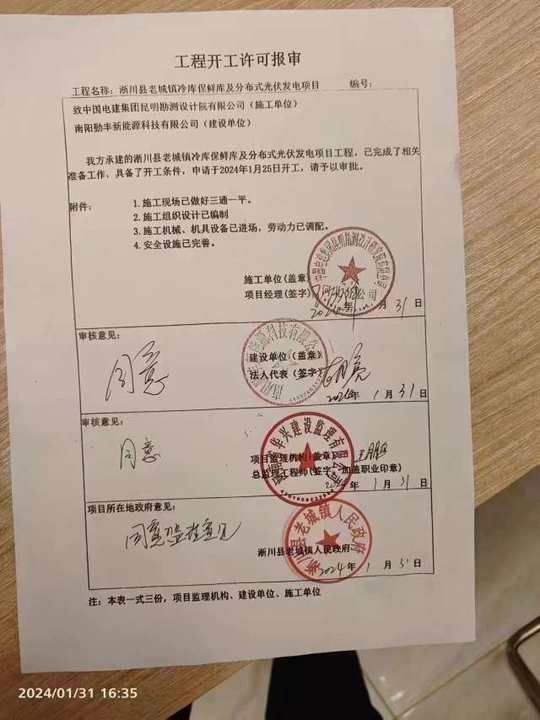 工程开工许可报审
工程名称：淅川县老城镇冷库保鲜库及分布式光伏发电项目 编号：
致中国电建集团昆明勘测设计院有限公司（施工单位）
南阳勤丰新能源科技有限公司（建设单位）
我方承建的淅川县老城镇冷库保鲜库及分布式光伏发电项目工程，已完成了相关
准备工作、具备了开工条件，申请于2024年1月25日开工，请予以审批。
附件：
1.施工现场已做好三通一平。
2.施工组织设计已编制
3.施工机械、机具设备已进场，劳动力已调配。
4.安全设施已完善。
施工单位（盖章）
项目经理（签字）
年 1月 31日
审核意见：
同意
建设单位（盖章）
法人代表（签字）
2024年 1月 31日
审核意见：
同意
项目监理机构（盖章）
总监理工程师（签字、加盖职业印章）
年 1月 31日
华兴建设监理有限公司
项目所在地政府意见：
同意
淅川县老城镇人民政府
2024年 1月 31日
淅川县老城镇人民政府
注：本表一式三份，项目监理机构、建设单位、施工单位
2024/01/31 16:35